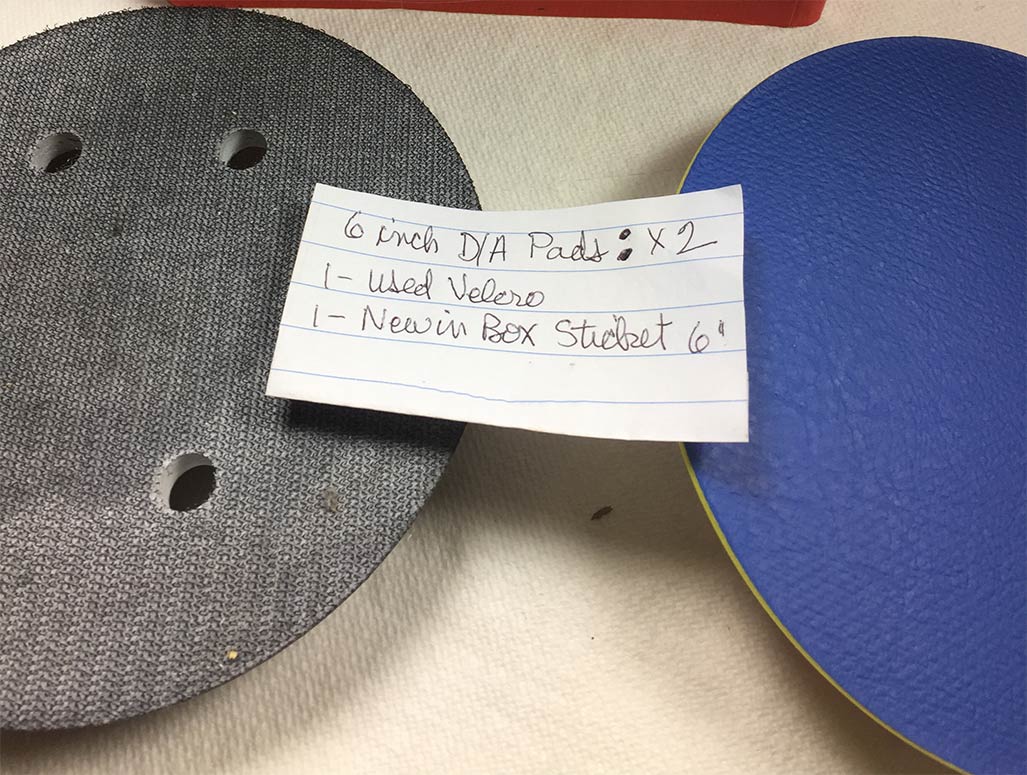 6 inch D/A Pads: x2
1- Used Velcro
1- New in Box Sticket 6"